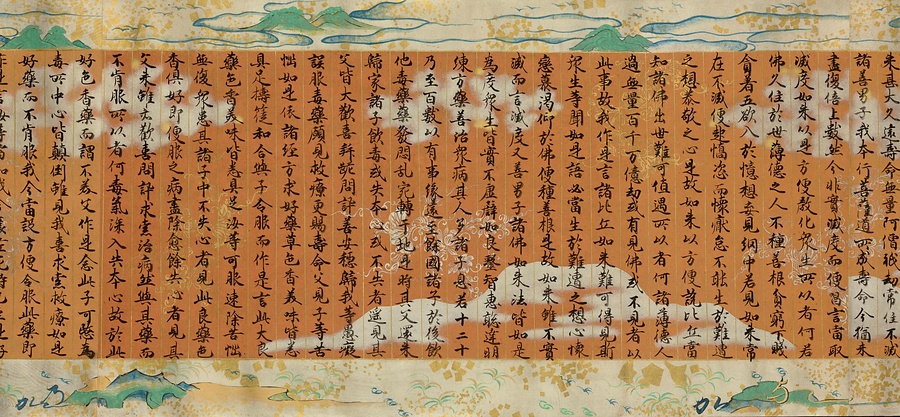 來甚大久遠壽命無量阿僧祇劫常住不滅
諸善男子我本行菩薩道所成壽命今猶未
盡復倍上數然今非實滅度而便唱言當取
滅度如來以是方便教化衆生所以者何若
佛久住於世薄德之人不種善根貧窮下賤
貪著五欲入於憶想妄見網中若見如來常
在不滅便起憍恣而懷厭怠不能生於難遭
之想恭敬之心是故如來以方便說比丘當
知諸佛出世難可值遇所以者何諸薄德人
過無量百千万億劫或有見佛或不見者以
此事故我作是言諸比丘如來難可得見斯
衆生等聞如是語必當生於難遭之想心懷
戀慕渴仰於佛便種善根是故如來雖不實
滅而言滅度又善男子諸佛如來法皆如是
為度衆生皆實不虛譬如良醫智慧聰達明
練方藥善治衆病其人多諸子息若十二十
乃至百數以有事緣遠至餘國諸子於後飲
他毒藥藥發悶亂宛轉于地是時其父還來
歸家諸子飲毒或失本心或不失者遙見其
父皆大歡喜拜跪問訊善安隱歸我等愚癡
誤服毒藥願見救療更賜壽命父見子等苦
惱如是依諸經方求好藥草色香美味皆悉
具足擣篩和合與子令服而作是言此大良
藥色香美味皆悉具足汝等可服速除苦惱
無復衆患其諸子中不失心者見此良藥色
香俱好即便服之病盡除愈餘失心者見其
父來雖亦歡喜問訊求索治病然與其藥而
不肯服所以者何毒氣深入失本心故於此
好色香藥而謂不美父作是念此子可愍為
毒所中心皆顛倒雖見我喜求索救療如是
好藥而不肯服我今當設方便令服此藥即